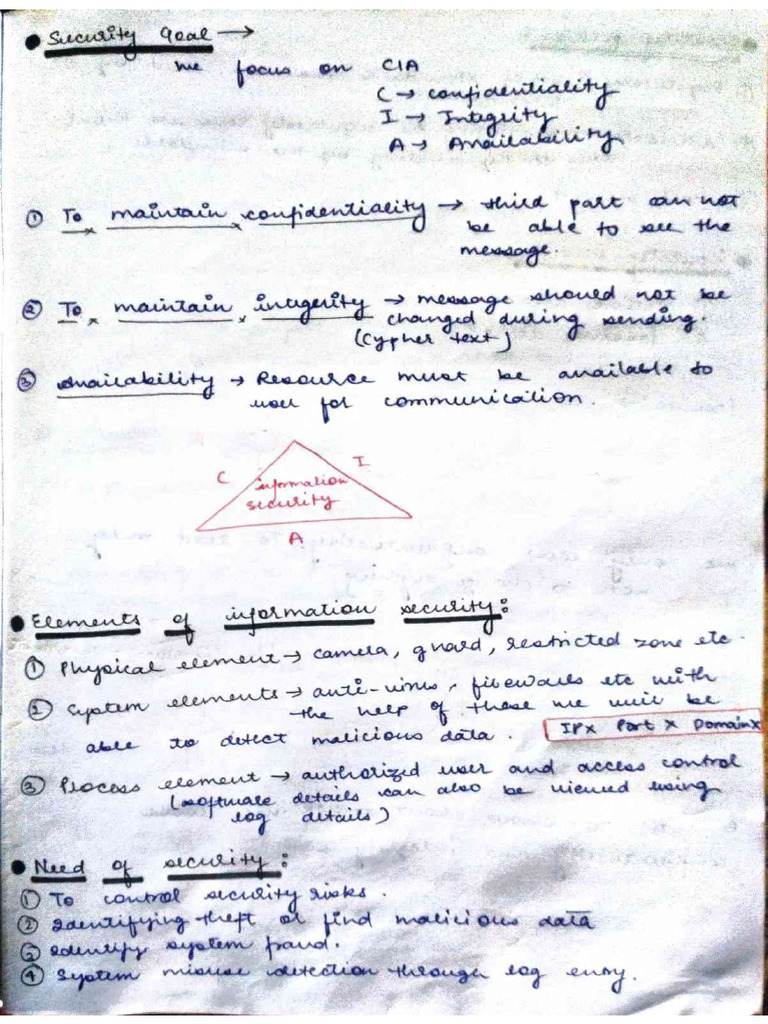 ● Security Goal →
we focus on CIA
C → confidentiality
I → Integrity
A → Availability
① To maintain confidentiality → third part can not
be able to see the
message.
② To maintain intigerity → message should not be
changed during sending.
(Cypher text)
③ Availability → Resource must be available to
user for communication.
C
I
information
security
A
● Elements of information security:
① Physical element → camela, guard, restricted zone etc.
② System elements → anti-virus, firewalls etc with
the help of these we will be
able to detect malicious data.
IPx Port x Domainx
③ Process element → authorized user and access control
(software details can also be viewed using
log details)
● Need of security:
① To control security risks.
② Identifying theft or find malicious data
③ Identify system fraud.
④ System misuse detection through log entry.